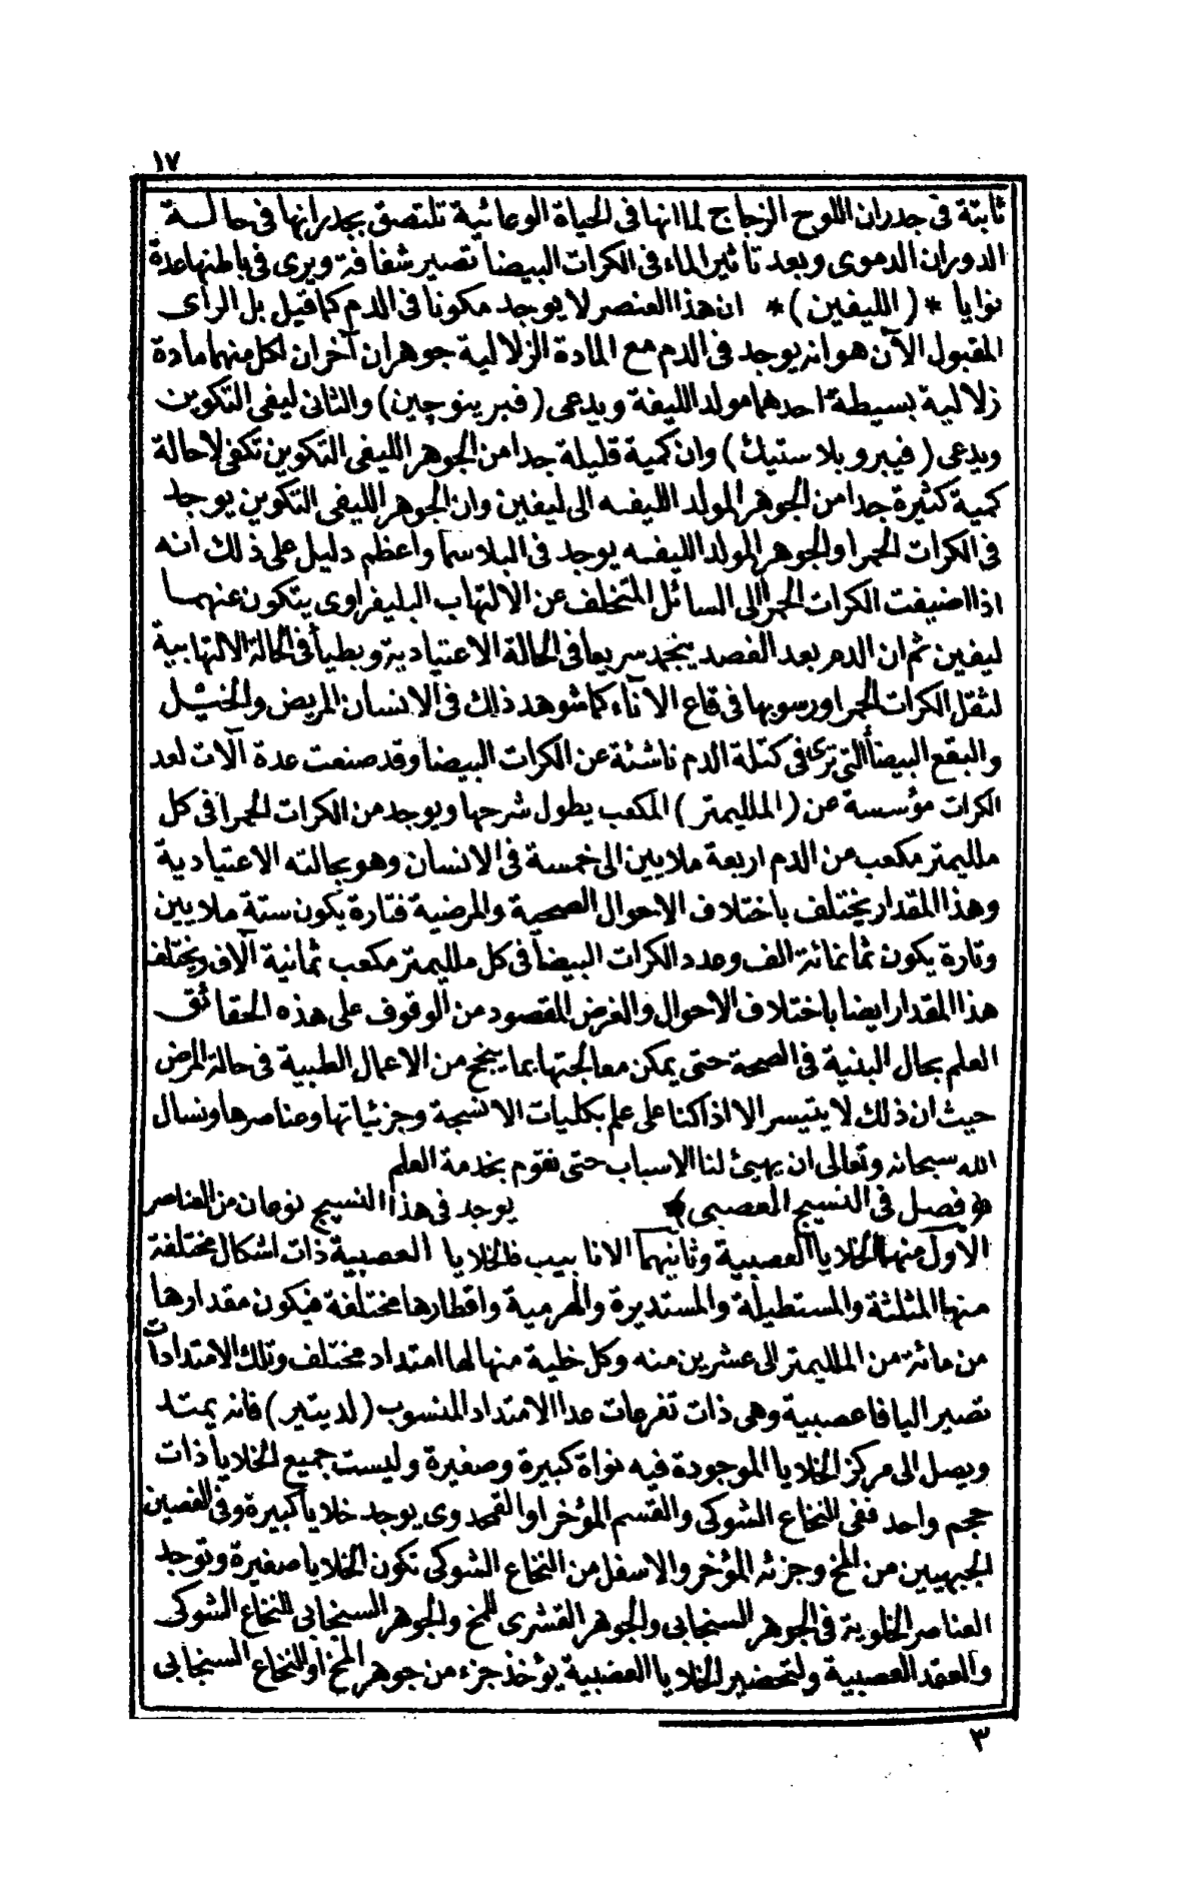 ١٧
ثابتة فى جدران اللوح الزجاج لما انها فى الحياة الوعائية تلتصق بجدرانها فى حالة
الدوران الدموى وبعد تاثير الماء فى الكرات البيضا تصير شفافة ويرى فى باطنها عدة
نوايا * (الليفين) * ان هذا العنصر لا يوجد مكونا فى الدم كما قيل بل الرأى
المقبول الآن هو انه يوجد فى الدم مع المادة الزلالية جوهران آخران لكل منهما مادة
زلالية بسيطة احدهما مولد الليفة ويدعى (فبرينوچين) والثانى ليفى التكوين
ويدعى (فيبروبلاستيك) وان كمية قليلة جدا من الجوهر الليفى التكوين تكفى لاحالة
كمية كثيرة جدا من الجوهر المولد الليفه الى ليفين وان الجوهر الليفى التكوين يوجد
فى الكرات الحمرا والجوهر المولد الليفه يوجد فى البلاسما واعظم دليل على ذلك انه
اذا اضيفت الكرات الحمرا الى السائل المتخلف عن الالتهاب البليفراوى يتكون عنهما
ليفين ثم ان الدم بعد الفصد ينجمد سريعا فى الحالة الاعتيادية وبطيأ فى الحالة الالتهابية
لثقل الكرات الحمرا ورسوبها فى قاع الاناء كما شوهد ذلك فى الانسان المريض والخيل
والبقع البيضأ التى ترى فى كتلة الدم ناشئة عن الكرات البيضا وقد صنعت عدة آلات لعد
الكرات مؤسسة عن (الملليمتر) المكعب يطول شرحها ويوجد من الكرات الحمرا فى كل
ملليمتر مكعب من الدم اربعة ملايين الى خمسة فى الانسان وهو بحالته الاعتيادية
وهذا المقدار يختلف باختلاف الاحوال الصحية والمرضية فتارة يكون ستة ملايين
وتارة يكون ثمانمائة الف وعدد الكرات البيضا فى كل ملليمتر مكعب ثمانية آلاف ويختلف
هذا المقدار ايضا باختلاف الاحوال والغرض المقصود من الوقوف على هذه الحقائق
العلم بحال البنية فى الصحة حتى يمكن معالجتها بما ينجح من الاعمال الطبية فى حالة المرض
حيث ان ذلك لا يتيسر الا اذا كنا على علم بكليات الانسجة وجزئياتها وعناصرها ونسال
الله سبحانه وتعالى ان يهيئ لنا الاسباب حتى نقوم بخدمة العلم
﴿فصل فى النسيج العصبى﴾ يوجد فى هذا النسيج نوعان من العناصر
الأول منهما الخلايا العصبية وثانيهما الانابيب فالخلايا العصبية ذات اشكال مختلفة
منها المثلثة والمستطيلة والمستديرة والهرمية واقطارها مختلفة فيكون مقدارها
من مائة من الملليمتر الى عشرين منه وكل خلية منها لها امتداد مختلف وتلك الامتدادات
تصير اليافا عصبية وهى ذات تفرعات عدا الامتداد المنسوب (لديتير) فانه يمتد
ويصل الى مركز الخلايا الموجودة فيه نواة كبيرة وصغيرة وليست جميع الخلايا ذات
حجم واحد ففى النخاع الشوكى والقسم المؤخر او القمحدوى يوجد خلايا كبيرة وفى الفصين
الجبهيين من المخ وجزئه المؤخر والاسفل من النخاع الشوكى تكون الخلايا صغيرة وتوجد
العناصر الخلوية فى الجوهر السنجابى والجوهر القشرى للمخ والجوهر السنجابى للنخاع الشوكى
والعقد العصبية ولتحضير الخلايا العصبية يؤخذ جزء من جوهر المخ او النخاع السنجابى
٣